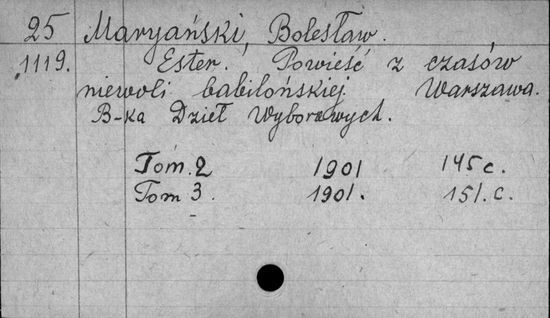 25 Maryański, Bolesław.
1119. Ester. Powieść z czasów
niewoli babilońskiej. Warszawa.
B-ka Dzieł Wyborowych.
Tom. 2 1901 145 c.
Tom 3. 1901. 151. c.